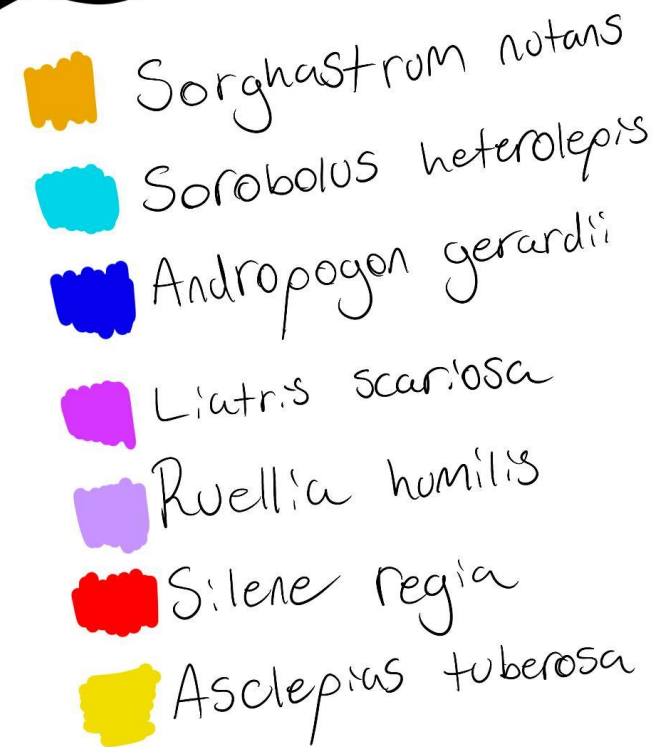 Sorghastrum nutans
Sorobolus heterolepis
Andropogon gerardii
Liatris scariosa
Ruellia humilis
Silene regia
Asclepias tuberosa